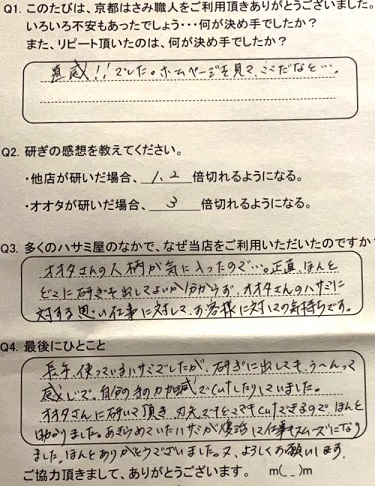 Q1. このたびは、京都はさみ職人をご利用頂きありがとうございました。
いろいろ不安もあったでしょう・・・何が決め手でしたか?
また、リピート頂いたのは、何が決め手でしたか?
直感!!でした。ホームページを見て、ここだなと…。
Q2. 研ぎの感想を教えてください。
・他店が研いだ場合、1、2 倍切れるようになる。
・オオタが研いだ場合、3 倍切れるようになる。
Q3. 多くのハサミ屋のなかで、なぜ当店をご利用いただいたのですか
オオタさんの人柄が気に入ったので…。正直、ほんと
どこに研ぎを出してよいか分からず、オオタさんのハサミに
対する思い仕事に対して、お客様に対しての気持ちです。
Q4. 最後にひとこと
長年、使っているハサミでしたが、研ぎに出しても、う～んって
感じで、自分の手の力加減でcutしたりしていました。
オオタさんに研いで頂き、刃元でもどこでもcutできるので ほんと
助かりました。あきらめていたハサミが復活して仕事もスムーズになり
ました。ほんとありがとうございました。又、よろしくお願いします。
ご協力頂きまして、ありがとうございます。 m(__)m